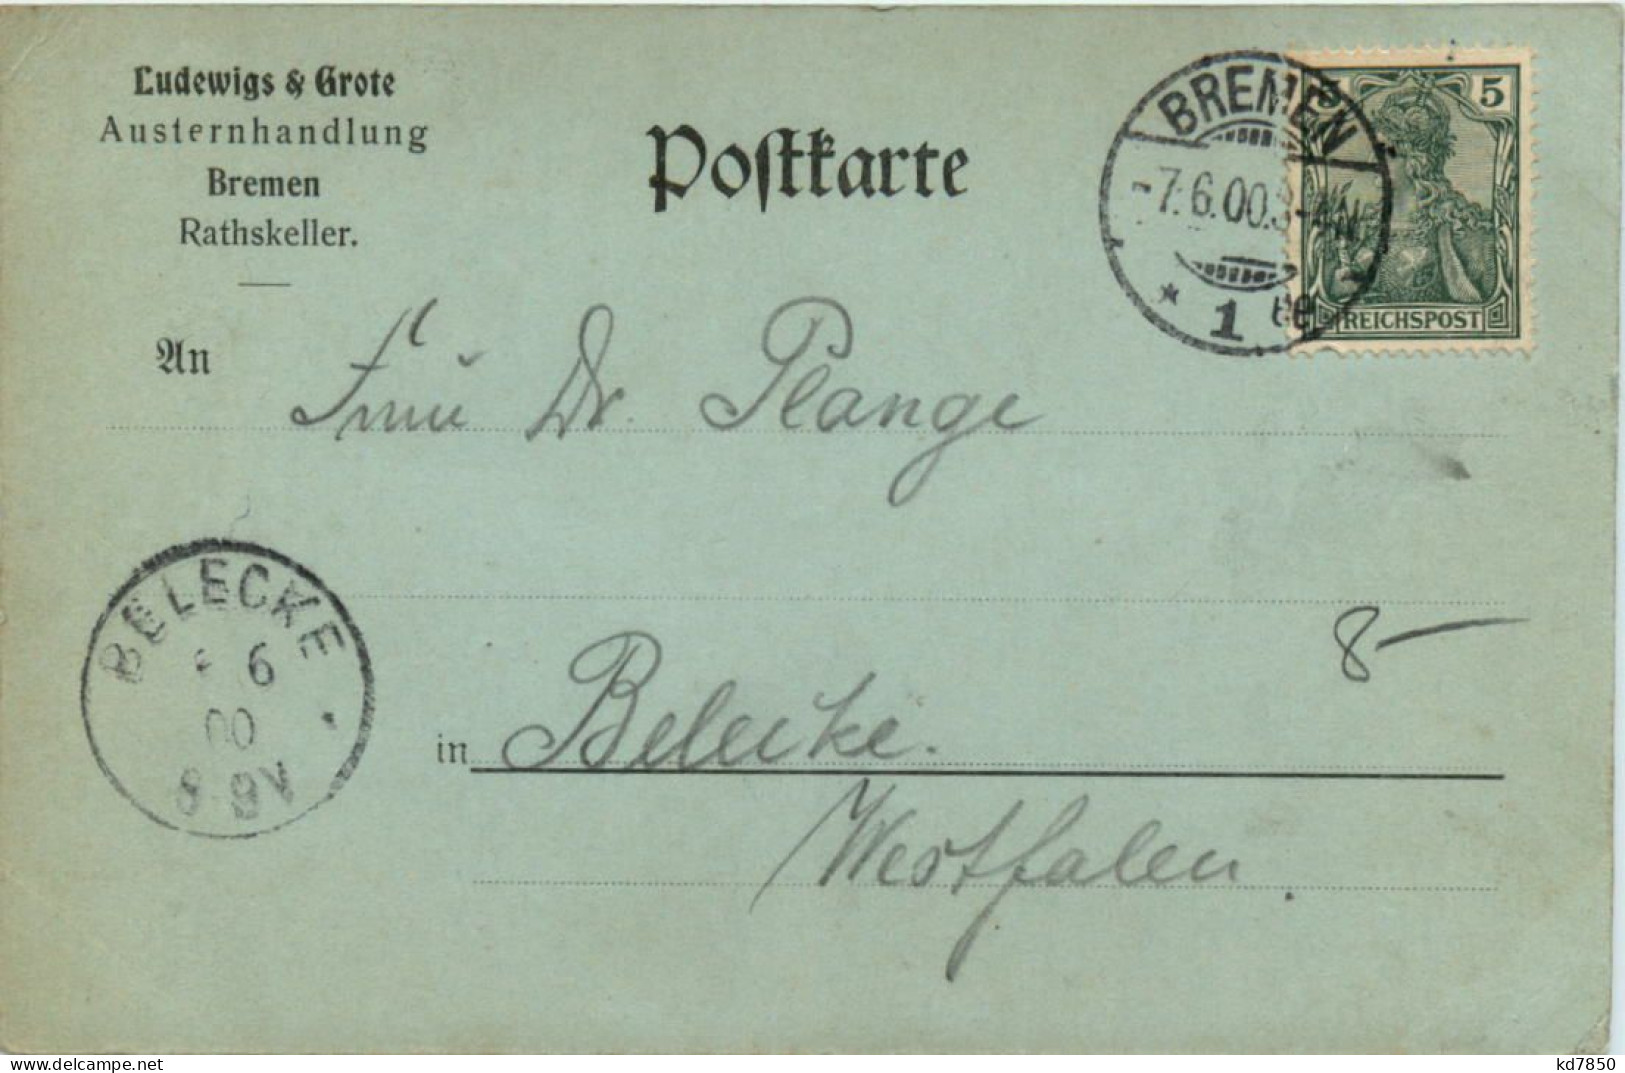 Ludewigs & Grote
Austernhandlung
Bremen
Rathskeller.
Postkarte
BREMEN
7.6.00.3-4N.
* 1 ee
5
REICHSPOST
An
Frau Dr. Plange
BELECKE
6
00
8-9V
8-
in Belecke.
Westfalen.
www.delcampe.net
kd7850